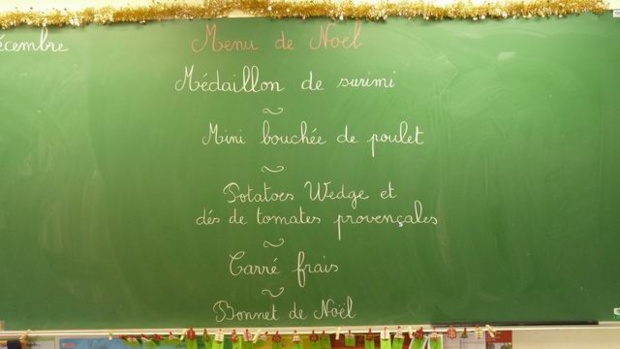 écembre
Menu de Noël
Médaillon de surimi
~
Mini bouchée de poulet
~
Potatoes Wedge et
dés de tomates provençales
~
Carré frais
~
Bonnet de Noël